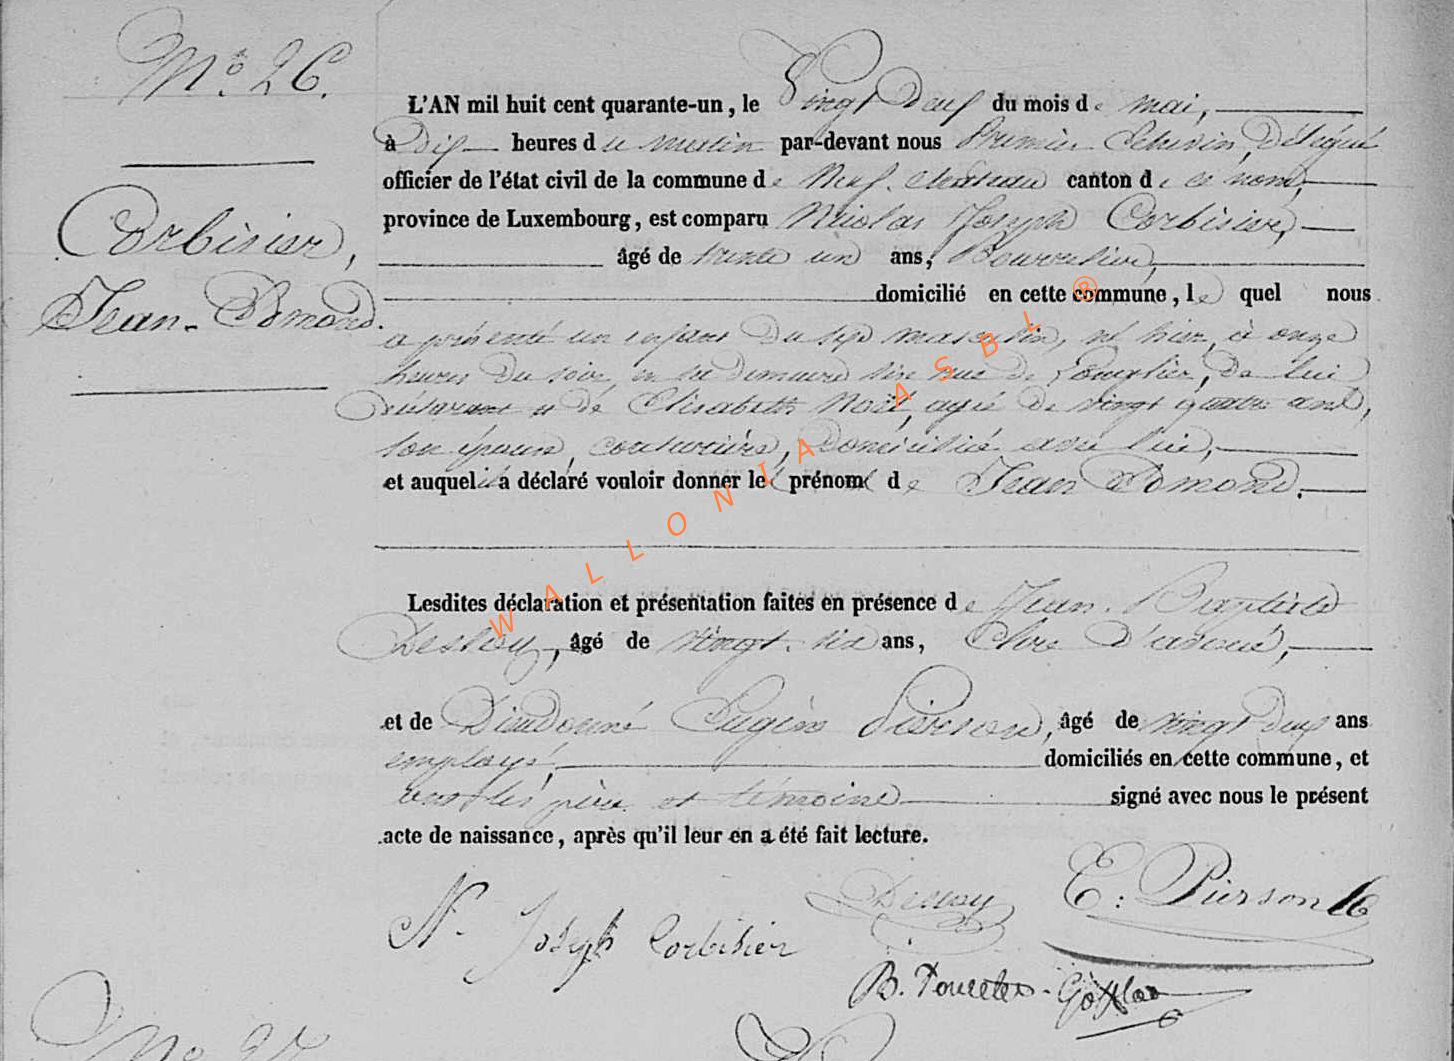 N° 26.
Corbisier,
Jean-Edmond.
L'AN mil huit cent quarante-un, le Vingt Deux du mois de mai,
à Dix heures du matin par-devant nous Premier Echevin, Délégué
officier de l'état civil de la commune de Neufchateau canton de ce nom,
province de Luxembourg, est comparu Nicolas Joseph Corbisier,
âgé de trente un ans, Bourrelier,
domicilié en cette commune, le quel nous
a présenté un enfant du sexe masculin, né hier, à onze
heures du soir, en sa demeure sise rue de, de lui
déclarant et de Elisabeth Noël, agée de vingt quatre ans,
son épouse, couturière, domiciliée avec lui,
et auquel il a déclaré vouloir donner les prénoms de Jean Edmond.
Lesdites déclaration et présentation faites en présence de Jean-Baptiste
Dessoy, âgé de vingt-six ans, Clerc d'avoué,
et de Dieudonné Eugène Pierson, âgé de vingt deux ans
employé, domiciliés en cette commune, et
ont les père et témoins signé avec nous le présent
acte de naissance, après qu'il leur en a été fait lecture.
N. Joseph Corbisier
Dessoy
E: Pierson
B.
N° 27
WALLONIA ASBL ®